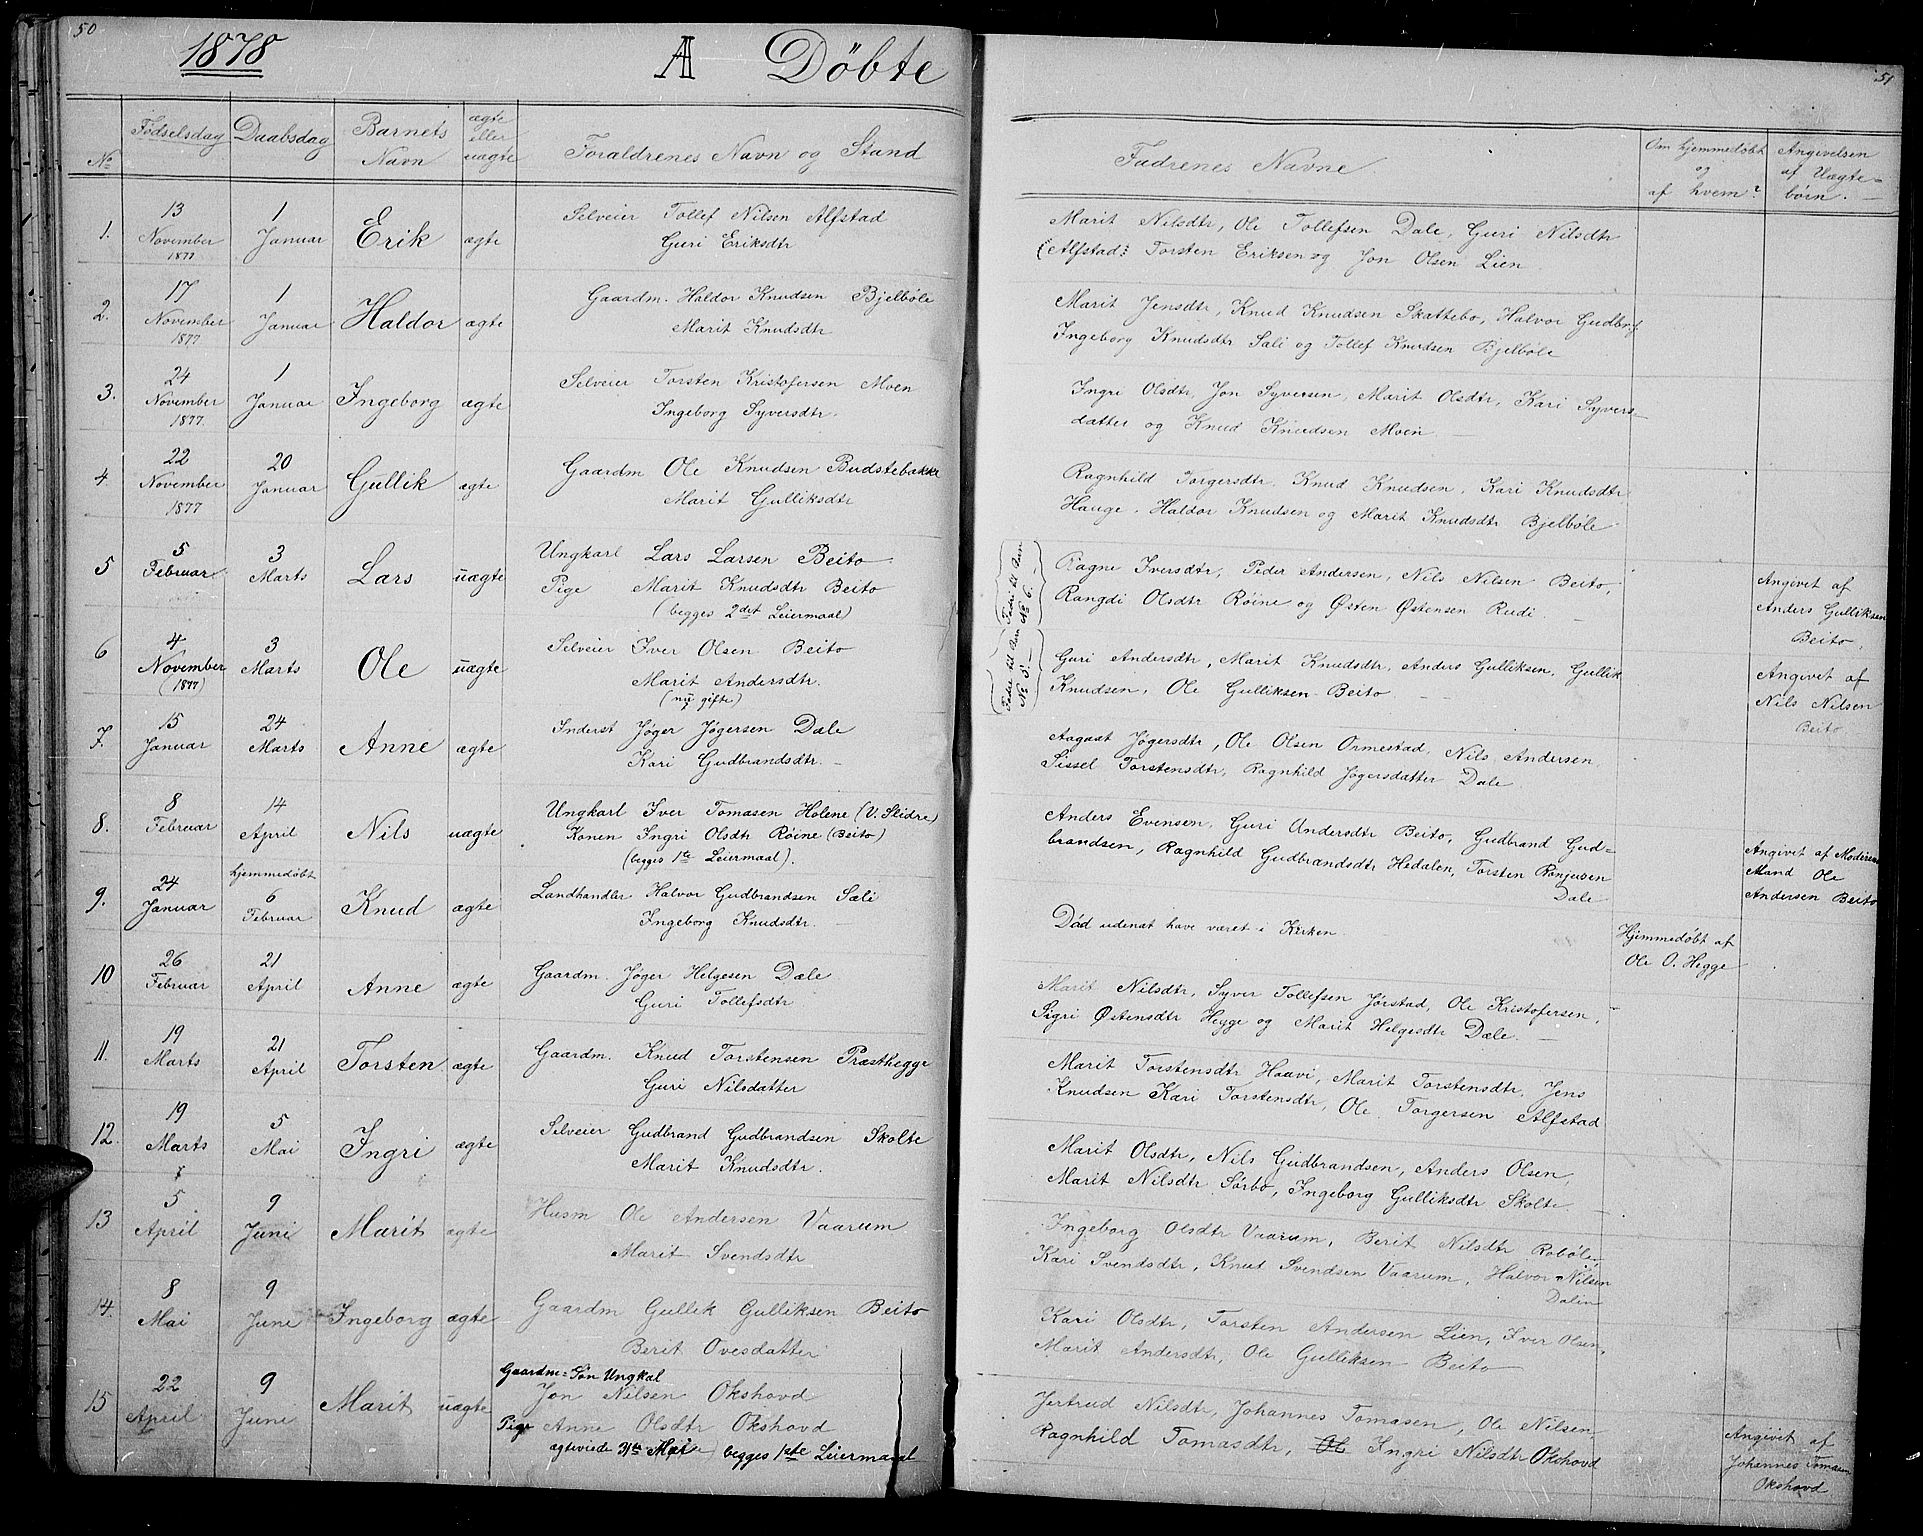 50
1878 A Döbte
No
Födselsdag
Daabsdag
Barnets
Navn
ægte
eller
uægte
Foraldrenes Navn og Stand
1.
13
November
1877
1
Januar
Erik
ægte
Selveier Tollef Nilsen Alfstad
Guri Eriksdtr
2.
17
November
1877
1
Januar
Haldor
ægte
Gaardm. Haldor Knudsen Bjelböle
Marit Knudsdtr
3.
24
November
1877.
1
Januar
Ingeborg
ægte
Selveier Torsten Kristofersen Moen
Ingeborg Syversdtr.
4.
22
November
1877
20
Januar
Gullik
ægte
Gaardm Ole Knudsen Budstebakke
Marit Gulliksdtr
5
5
Februar
3
Marts
Lars
uægte
Ungkarl Lars Larsen Beito
Pige Marit Knudsdtr Beito
(begges 2det Leiermaal)
6
4
November
(1877)
3
Marts
Ole
uægte
Selveier Iver Olsen Beito
Marit Andersdtr.
(nÿ gifte)
7.
15
Januar
24
Marts
Anne
ægte
Inderst Jöger Jögersen Dale
Kari Gudbrandsdtr. —
8.
8
Februar
14
April
Nils
uægte
Ungkarl Iver Tomasen Holene (V. Slidre)
Konen Ingri Olsdtr Röine (Beito)
(begges 1te Leiermaal).
9.
24
Januar
hjemmedöbt
6
Februar
Knud
ægte
Landhandler Halvor Gudbrandsen Sæli
Ingeborg Knudsdtr. —
10
26
Februar
21
April
Anne
ægte
Gaardm. Jöger Helgesen Dale
Guri Tollefsdtr
11.
19
Marts
21
April
Torsten
ægte
Gaardm. Knud Torstensen Præsthegge
Guri Nilsdatter
12.
19
Marts
5
Mai
Ingri
ægte
Selveier Gudbrand Gudbrandsen Skolte
Marit Knudsdtr.
13
5
April
9
Juni
Marit
ægte
Husm Ole Andersen Vaarum
Marit Svendsdtr
14.
8
Mai
9
Juni
Ingeborg
ægte
Gaardm Gullik Gulliksen Beito
Berit Ovesdatter
15
22
April
9
Juni
Marit
uægte
Gaardm= Søn Ungkal
Jon Nilsen Okshovd
Pige Anne Olsdtr Okshovd
ægteviede 31te Mai begges 1ste Leiermaal
51
Fadrenes Navne
Om hjemmedöbt
og
af hvem?
Angivelsen
af Uægte=
börn. —
Marit Nilsdtr, Ole Tollefsen Dale, Guri Nilsdtr
(Alfstad) Torsten Eriksen og Jon Olsen Lien
Marit Jensdtr, Knud Knudsen Skattebo, Halvor Gudbr
Ingeborg Knudsdtr Sæli og Tollef Knudsen Bjelböle
Ingri Olsdtr, Jon Syversen, Marit Olsdtr, Kari Syvers—
datter og Knud Knudsen Moen —
Ragnhild Torgersdtr. Knud Knudsen, Kari Knudsdtr.
Hauge. Haldor Knudsen og Marit Knudsdtr Bjelböle
Fadre til Barn
No 6. —
Ragne Iversdtr, Peder Andersen, Nils Nilsen Beito,
Rangdi Olsdtr Röine og Østen Østensen Rudi. —
Angivet af
Anders Gulliksen
Beito.
Fadre til Barn
No 5. —
Guri Andersdtr, Marit Knudsdtr, Anders Gulliksen, Gullik
Knudsen, Ole Gulliksen Beito —
Angivet af
Nils Nilsen
Beito
Aagaat Jögersdtr, Ole Olsen Ormestad, Nils Andersen
Sissel Torstensdtr, Ragnhild Jögersdatter Dale.
Anders Evensen, Guri Andersdtr Beito, Gudbrand Gud=
brandsen, Ragnhild Gudbrandsdtr Hedalen, Torsten Ronjusen
Dale
Angivet af Moderens
Mand Ole
Andersen Beito
Död udenat have været i Kirken
Hjemmedöbt af
Ole O. Hegge
Marit Nilsdtr, Syver Tollefsen Jörstad, Ole Kristofersen,
Sigri Østensdtr Hegge og Marit Helgesdtr Dale. —
Marit Torstensdtr Haavi, Marit Torstensdtr, Jens
Knudsen Kari Torstensdtr, Ole Torgersen Alfstad
Marit Olsdtr, Nils Gudbrandsen, Anders Olsen,
Marit Nilsdtr Sörbo, Ingeborg Gulliksdtr Skolte. —
Ingeborg Olsdtr Vaarum, Berit Nilsdtr Roböle
Kari Svendsdtr, Knud Svendsen Vaarum, Halvor Nilsen
Dalin
Kari Olsdtr, Torsten Andersen Lien, Iver Olsen,
Marit Andersdtr, Ole Gulliksen Beito
Jertrud Nilsdtr, Johannes Tomasen, Ole Nilsen
Ragnhild Tomasdtr, Ol Ingri Nilsdtr Okshovd
Angivet af
Johannes Tomasen
Okshovd